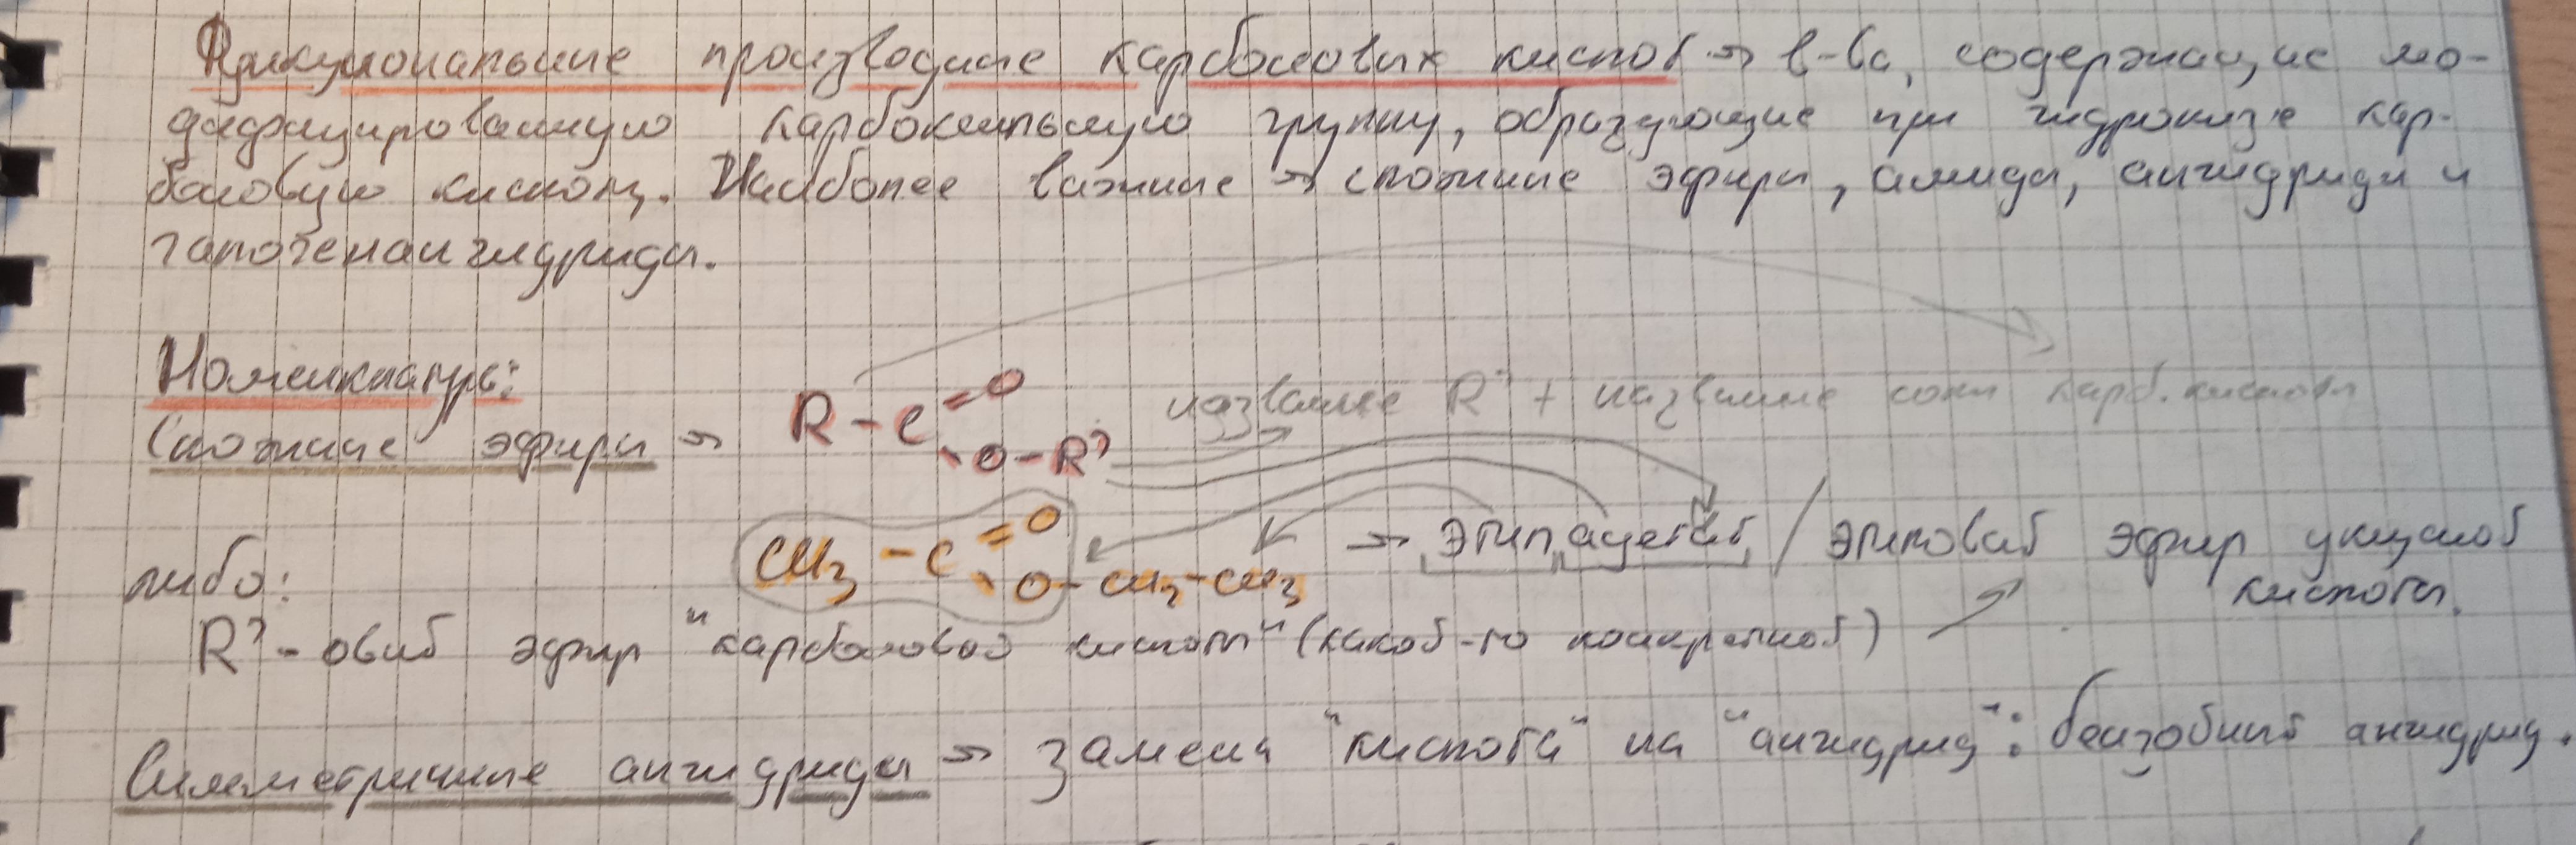 Функциональные производные карбоновых кислот → в-ва, содержащие мо-
дифицированную карбоксильную группу, образующие при гидролизе кар-
боновую кислоту. Наиболее важные → сложные эфиры, амиды, ангидриды и
галогенангидриды.
Номенклатура:
название R' + название соли карб. кислоты
Сложные эфиры → R-C=O
-O-R'
CH3-C=O
-O-CH2-CH3
→ этилацетат / этиловый эфир уксусной
кислоты.
либо:
R'-овый эфир "карбоновой кислоты" (какой-то конкретной)
Симметричные ангидриды → замена "кислота" на "ангидрид": бензойный ангидрид.